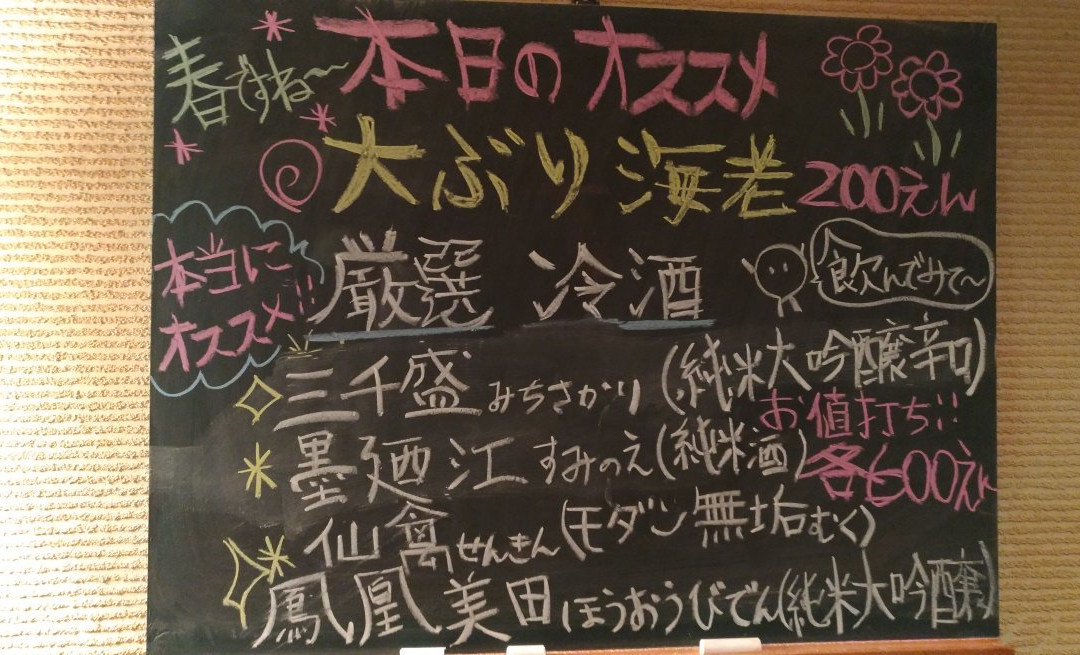 春ですね〜
本日のオススメ
大ぶり海老 200えん
本当に
オススメ!!
厳選 冷酒
飲んでみて〜
三千盛 みちさかり (純米大吟醸辛口)
お値打ち!!
各600えん
墨廼江 すみのえ (純米酒)
仙禽 せんきん (モダン無垢むく)
鳳凰美田 ほうおうびでん (純米大吟醸)